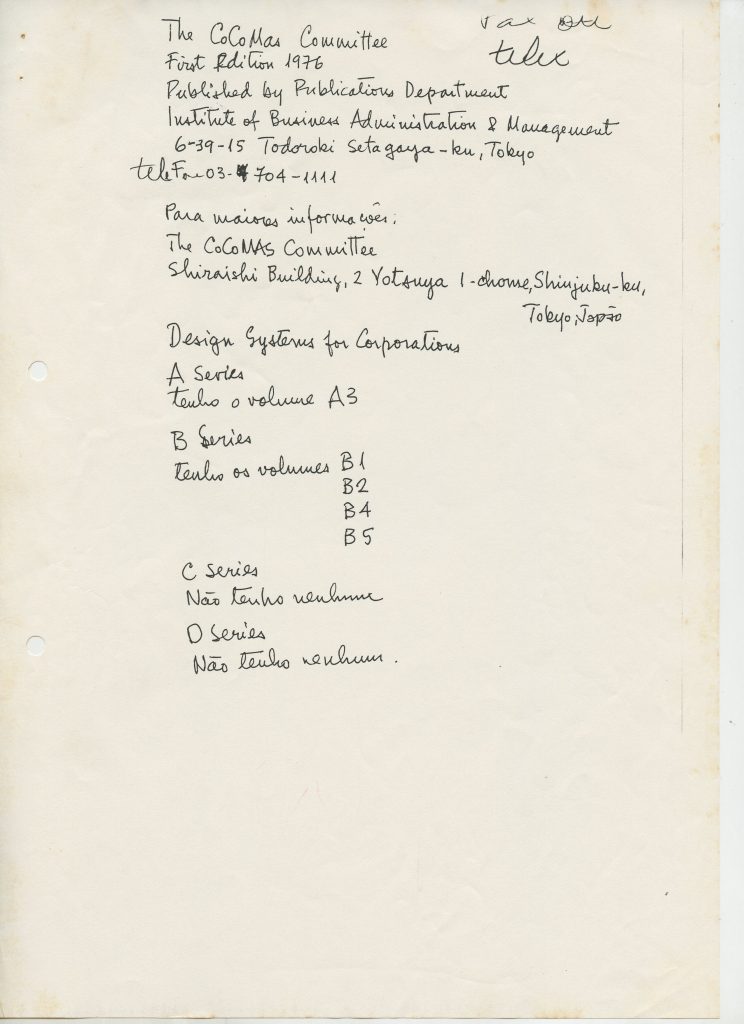 The CoCoMas Committee
Fax ou
telex
First Edition 1976
Published by Publications Department
Institute of Business Administration & Management
6-39-15 Todoroki Setagaya-ku, Tokyo
teleFone 03-704-1111
Para maiores informações:
The CoCoMAS Committee
Shiraishi Building, 2 Yotsuya 1-chome, Shinjuku-ku,
Tokyo, Japão
Design Systems for Corporations
A Series
tenho o volume A3
B Series
tenho os volumes B1
B2
B4
B5
C Series
Não tenho nenhum
D Series
Não tenho nenhum.